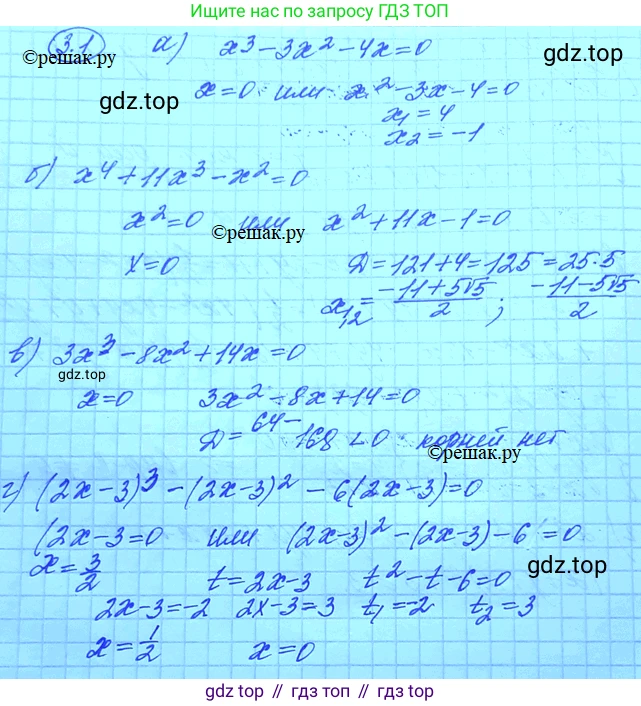 Ищите нас по запросу ГДЗ ТОП
3.1 а) x³ - 3x² - 4x = 0
©решак.ру
gdz.top
x = 0 или x² - 3x - 4 = 0
x₁ = 4
x₂ = -1
б) x⁴ + 11x³ - x² = 0
x² = 0 или x² + 11x - 1 = 0
©решак.ру
x = 0 Д = 121 + 4 = 125 = 25·5
x₁,₂ = (-11 + 5√5)/2 ; (-11 - 5√5)/2
в) 3x³ - 8x² + 14x = 0
gdz.top
x = 0 3x² - 8x + 14 = 0
Д = 64 - 168 < 0 корней нет
©решак.ру
г) (2x - 3)³ - (2x - 3)² - 6(2x - 3) = 0
(2x - 3 = 0 или (2x - 3)² - (2x - 3) - 6 = 0
gdz.top
x = 3/2 t = 2x - 3 t² - t - 6 = 0
2x - 3 = -2 2x - 3 = 3 t₁ = -2 t₂ = 3
x = 1/2 x = 0
gdz.top // гдз топ // gdz.top // гдз.топ